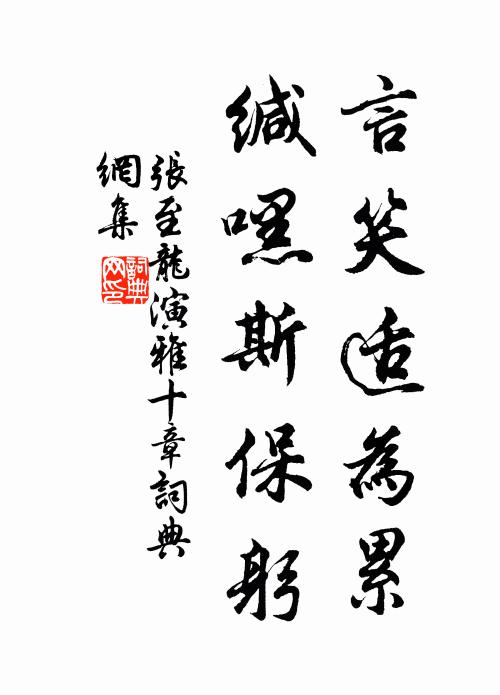 言笑适為累
緘嘿斯保躬
張至龍演雅十章詞典
網集
詞典網印